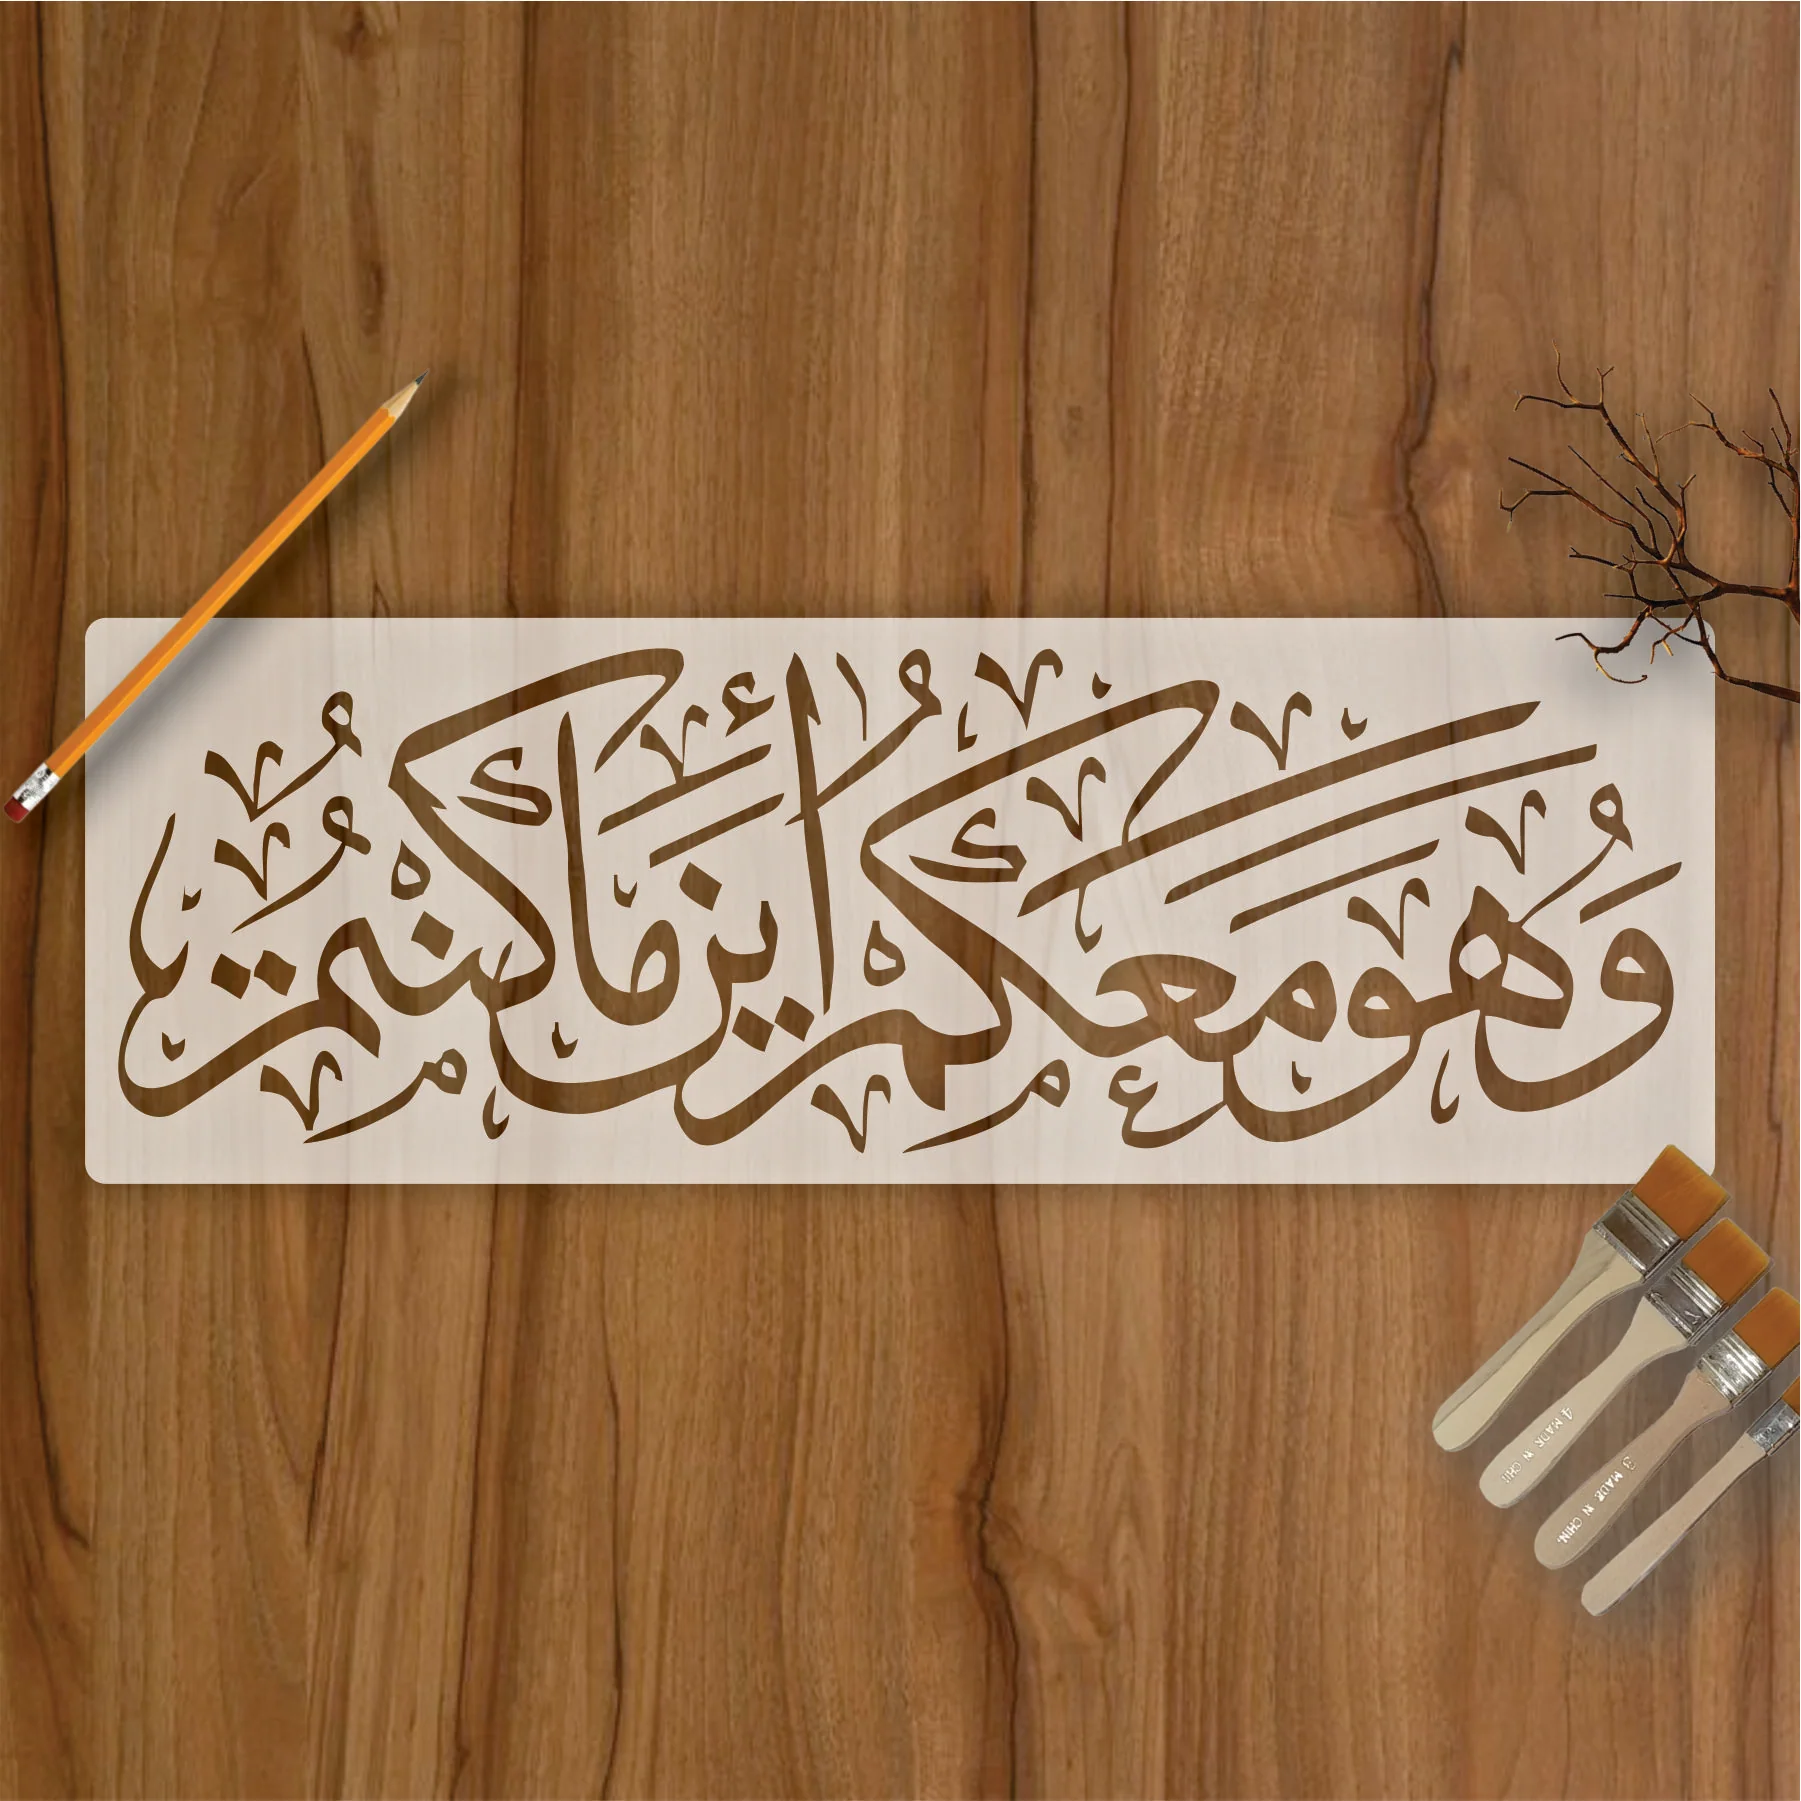 وَهُوَ مَعَكُمْ أَيْنَ مَا كُنْتُمْ
4 MADE IN CHI
3 MADE IN CHIN.